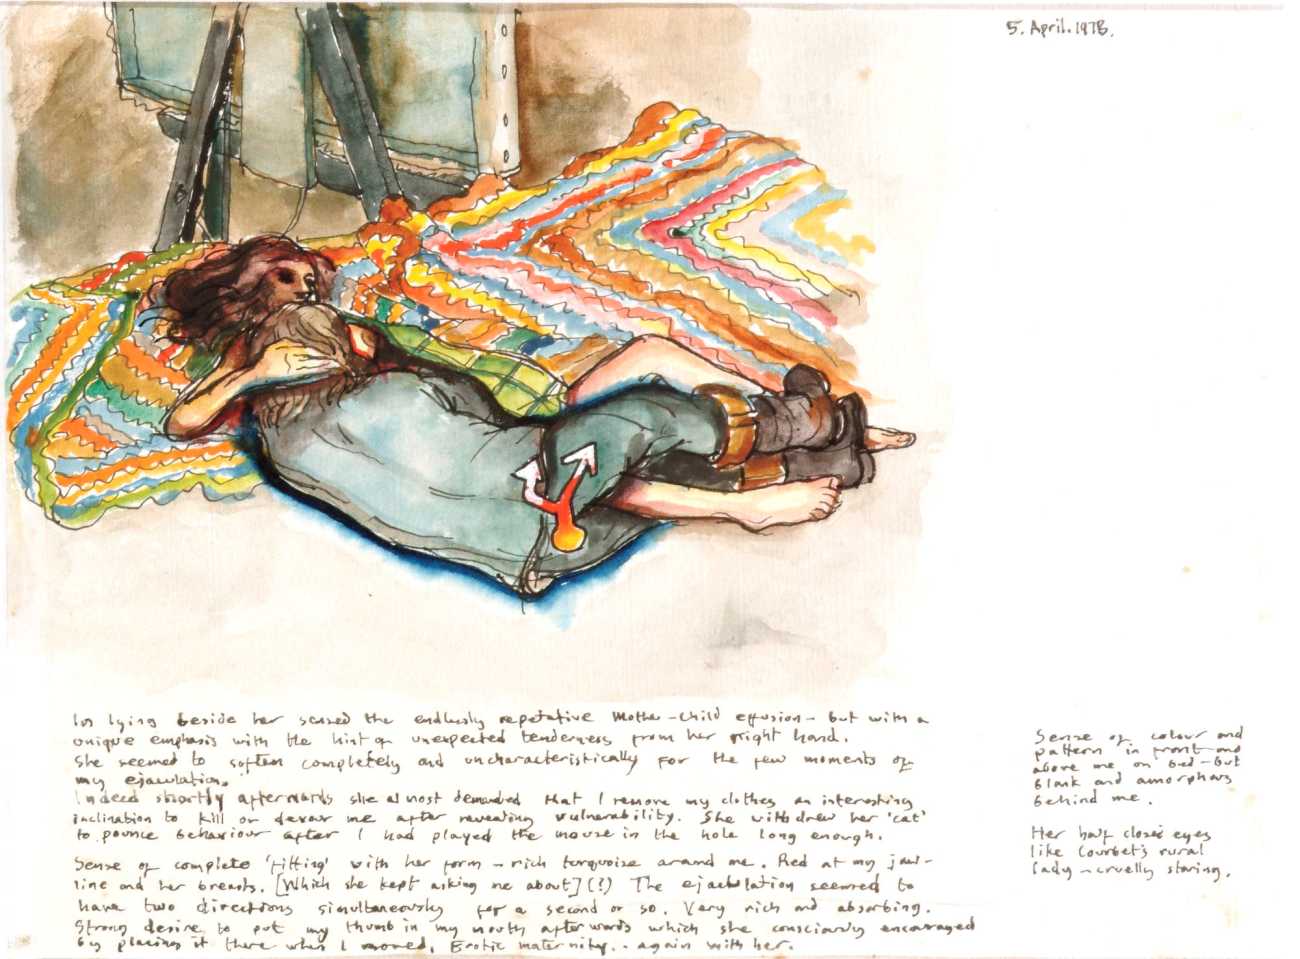 5. April. 1978.
lying beside her sensed the endlessly repetative Mother-Child effusion - but with a
unique emphasis with the hint of unexpected tenderness from her right hand.
She seemed to soften completely and uncharacteristically for the few moments of
my ejaculation.
Indeed shortly afterwards she almost demanded that I remove my clothes an interesting
inclination to kill or devour me after revealing vulnerability. She withdrew her 'cat'
to pounce behaviour after I had played the mouse in the hole long enough.
Sense of complete 'fitting' with her form - rich turquoise around me. Red at my jaw-
line and her breasts. [Which she kept asking me about] (?) The ejaculation seemed to
have two directions simultaneously for a second or so. Very rich and absorbing.
Strong desire to put my thumb in my mouth afterwards which she consciously encouraged
by placing it there when I moved. Erotic maternity. . again with her.
Sense of colour and
pattern in front and
above me on bed - but
blank and amorphous
behind me.
Her half closed eyes
like Courbet's rural
lady - cruelly staring.